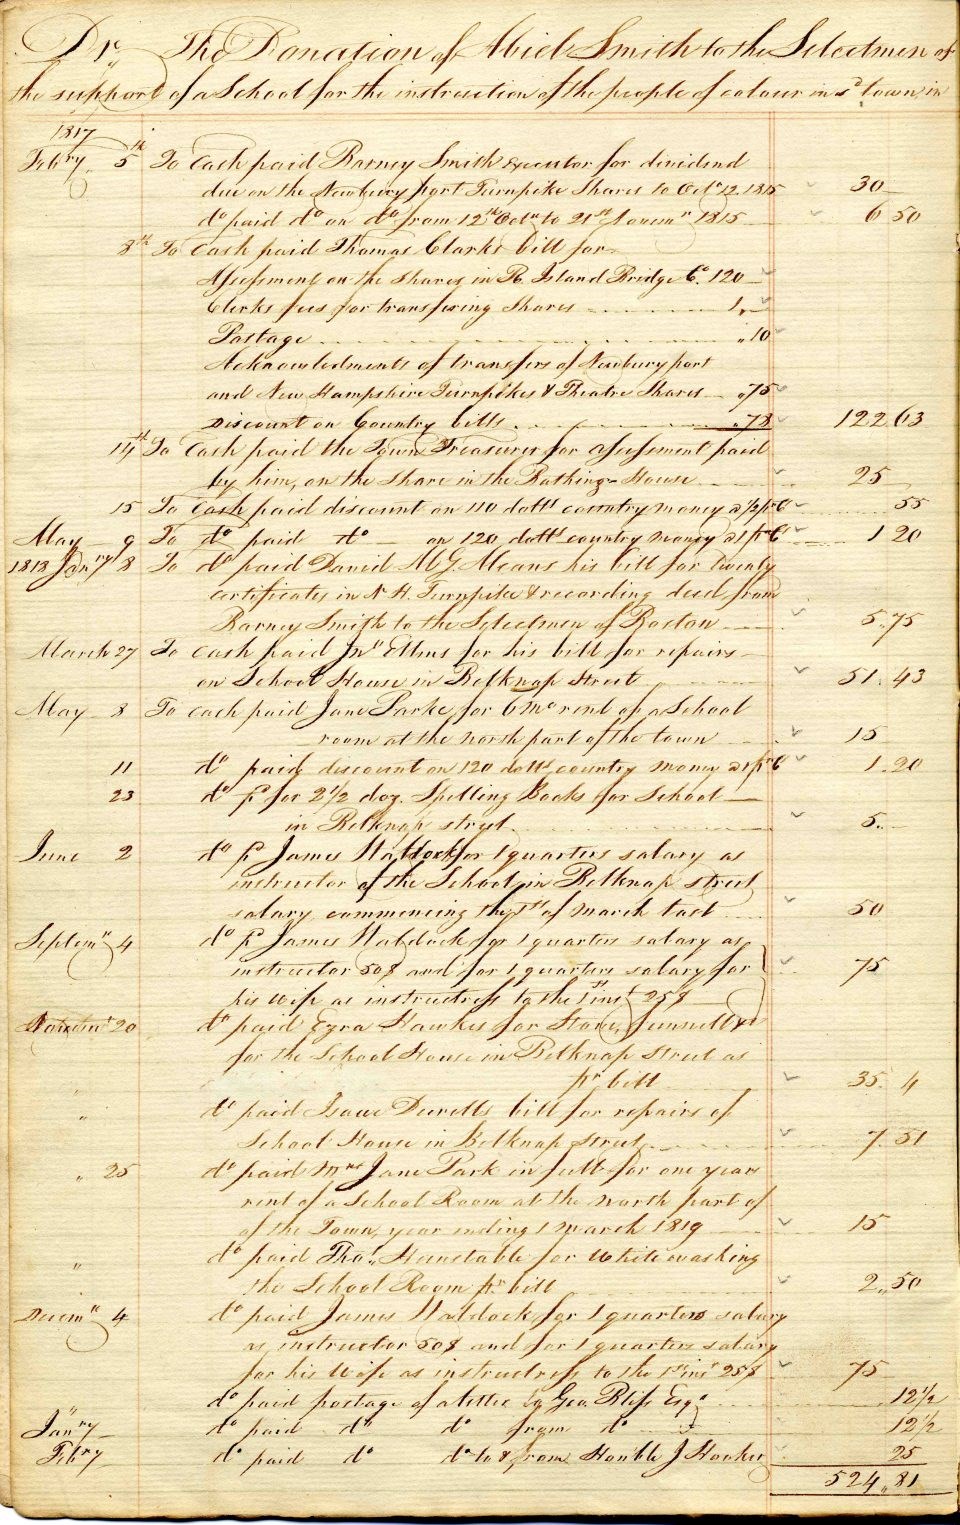 Dr. The Donation of Abiel Smith to the Selectmen of
the support of a School for the instruction of the people of colour in sd town in
1817
Febry. 5th To Cash paid Barney Smith Executor for dividend
due on the Newbury port Turnpike Shares to Octr 12. 1815 30
do paid do on do from 12th Octr to 21st Novemr 1815 6 50
8th To Cash paid Thomas Clarks bill for
Assessment on the shares in R. Island Bridge Co. 120
Clerks fees for transfering Shares 1,
Postage ,10
Acknowledments of transfers of Newbury port
and New Hampshire Turnpikes & Theatre Shares ,75
Discount on Country bills ,78 122 63
14th To Cash paid the Town Treasurer for assessment paid
by him, on the share in the Bathing-House 25
15 To Cash paid discount on 110 dolls country money a ½ pr C 55
May 9 To do paid do on 120 dolls country money a 1 pr C 1 20
1818 Janry 8 To do paid David McG. Means his bill for Twenty
certificates in N H. Turnpike & recording deed from
Barney Smith to the Selectmen of Boston 5.75
March 27 To Cash paid Jno Ellms for his bill for repairs
on School House in Belknap Street 51.43
May 8 To Cash paid Jane Parke for 6 Mo rent of a School
room at the north part of the town 15
11 do paid discount on 120 dolls country money a 1 pr C 1.20
23 do p for 2½ doz. Spelling Books for School
in Belknap street 5..
June 2 do p James Waldock for 1 quarters salary as
instructor of the School in Belknap street
salary commencing the 1st of march last 50
Septemr 4 do p James Waldock for 1 quarters salary as
instructor 50$ and for 1 quarters salary for 75
his Wife as instructress to the 1st inst 25$
20 do paid Ezra Hawkes for Stove, Funnell &c
for the School House in Belknap Street as
pr bill 35.4
" do paid Isaac bill for repairs of
School House in Belknap Street 7.51
" 25 do paid Mrs Jane Park in full for one years
rent of a School Room at the north part of
of the Town, year ending 1 march 1819 15
" do paid Thos. Hunstable for White washing
the School Room pr bill 2,,50
Decemr 4 do paid James Waldock for 1 quarters salary
as instructor 50$ and for 1 quarters salary
for his Wife as instructress to the 1st inst 25$ 75
do paid postage of a letter by Geo. Bliss Esqr 12½
Janry do paid do do from do 12½
Febry do paid do do to & from Honble J Hooker 25
524,,81